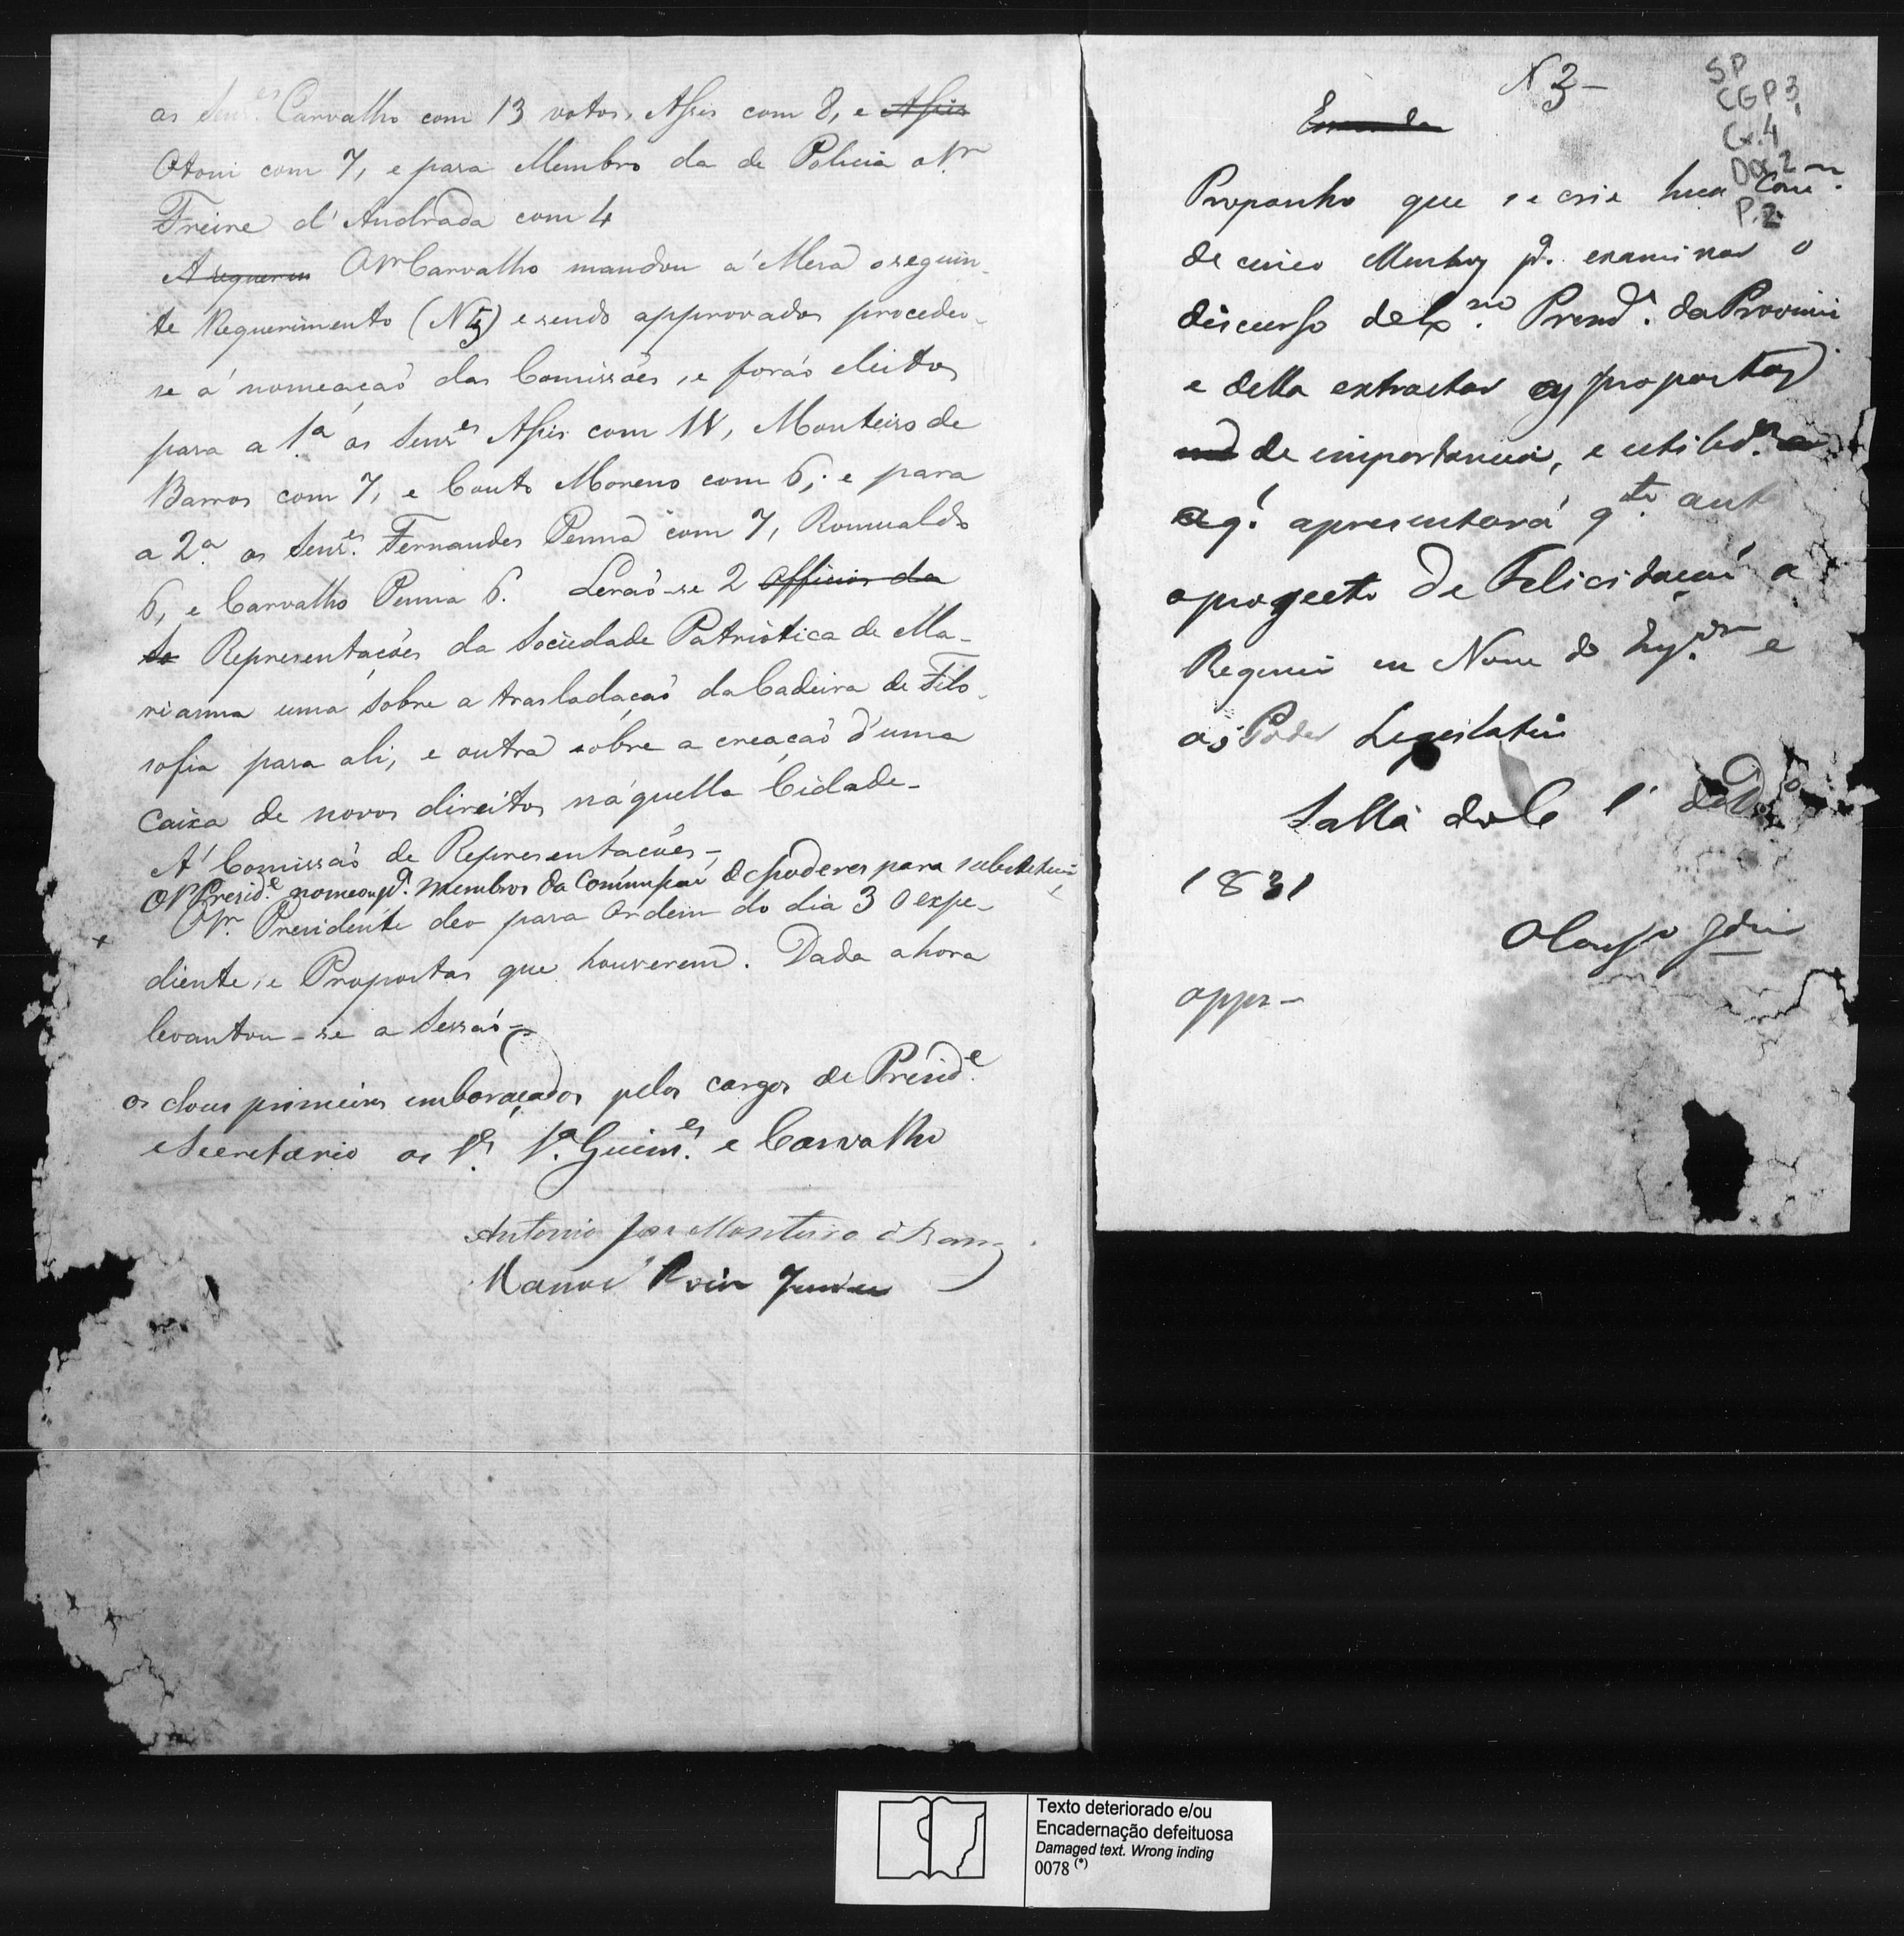 os Senr.es Carvalho com 13 votos, Assis com 8, e Assis
Otoni com 7, e para Membro da de Policia o Sr.
Freire d'Andrada com 4
A requereu O Sr Carvalho mandou á Mesa o seguin-
te Requerimento (N 3) e sendo approvado procedeo-
se á nomeaçaõ das Comissões, e foraõ eleitos
para a 1.a os Senr.es Assis com 11, Monteiro de
Barros com 7, e Couto Moreno com 6; e para
a 2.a os Senr.es Fernandes Penna com 7, Romualdo
6, e Carvalho Penna 6. Leraõ-se 2 officios da
So Representações da Sociedade Patriotica de Ma-
rianna uma sobre a trasladaçaõ da Cadeira de Filo-
sofia para ali, e outra sobre a creaçaõ d'uma
caixa de novos direitos náquella Cidade-
Á Comissaõ de Representações-
O Sr Presid.e nomeou p.a membros da Commissaõ de poderes para substituir
O Sr. Presidente deo para Ordem do dia 3 o expe-
diente, e Propostas que houverem. Dada a hora
levantou-se a Sessaõ-
os dous primeiros embaraçados pelos cargos de Presid.e
e Secretario os Sr.es S.a Guim.es e Carvalho
Antonio Jose Monteiro de Barros
Manoel
N 3-
Emenda
SP
CGP3,
Cx.4
Doc2
P.2
Proponho que se crie hua Com.m
de cinco Membros p.a examinar o
discurso do Ex.mo Presid.e da Provinci
e della extractar as propostas
de importancia, e utilid.e
a q.l apresentará q.to ant
o projecto de Felicitaçaõ a
Regencia em Nome do Imp.dor e
ao Poder Legislativo
Salla do C 1º de
1831
appr-
Texto deteriorado e/ou
Encadernação defeituosa
Damaged text. Wrong inding
0078 (*)